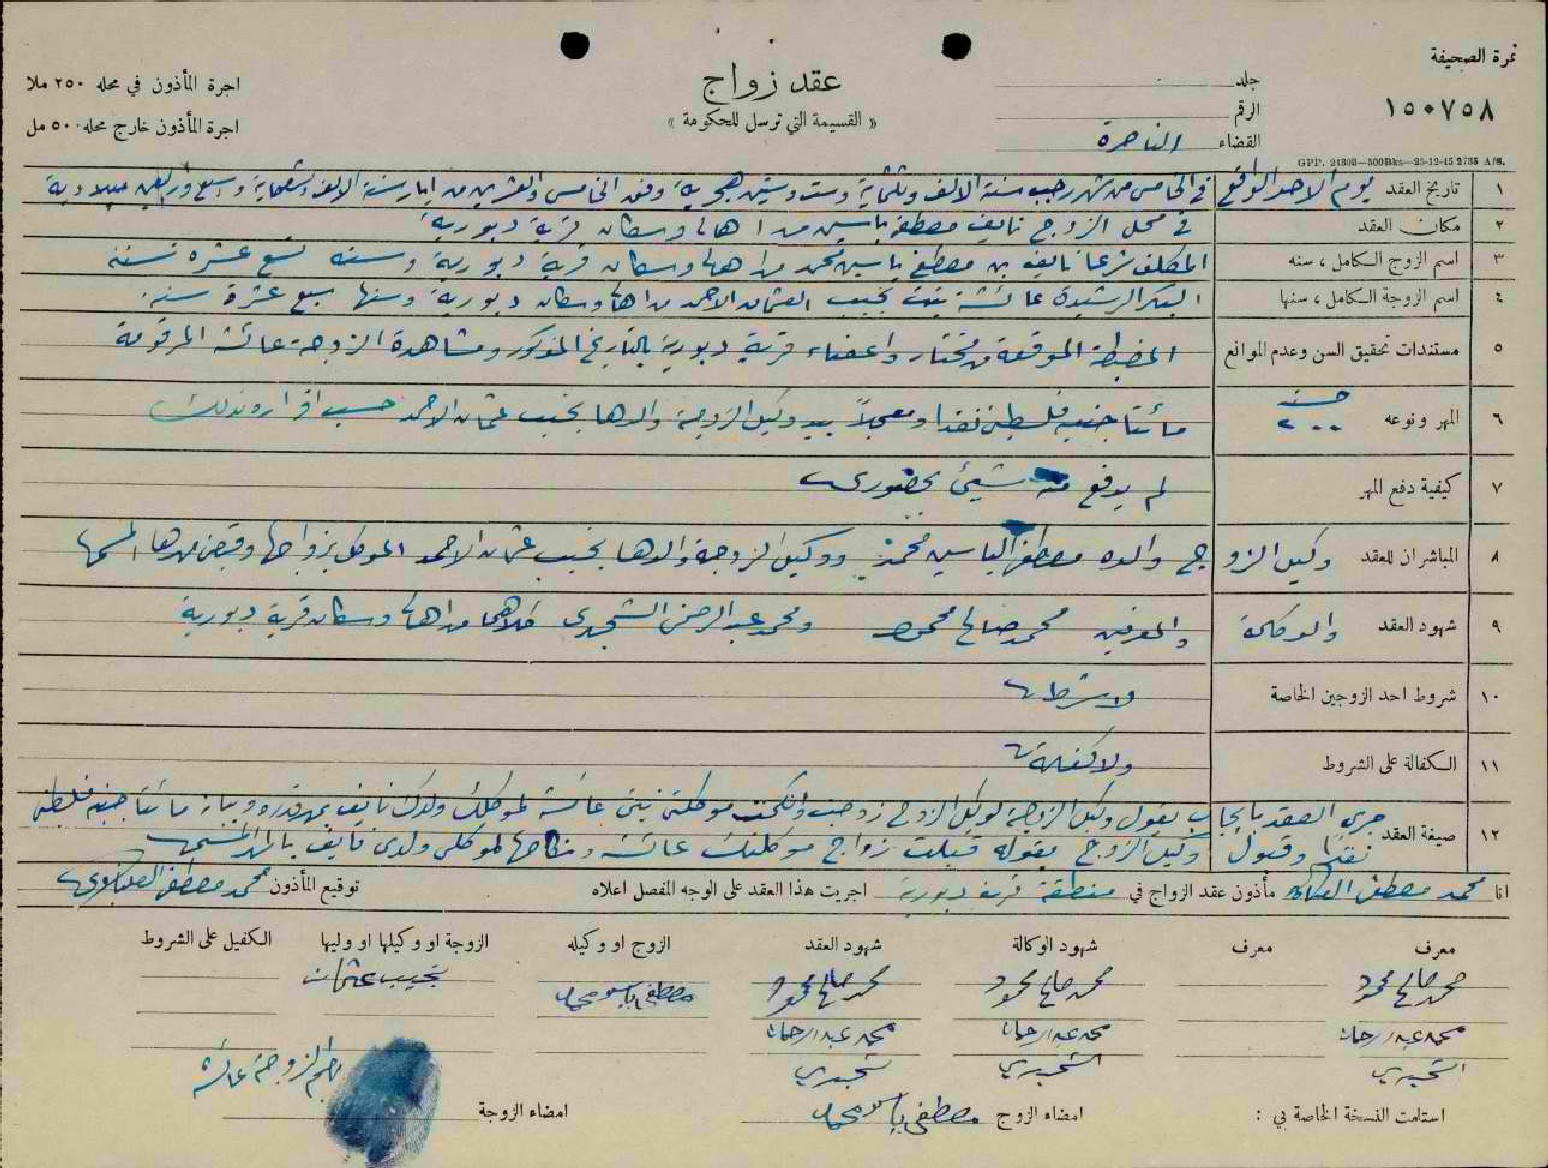 نمرة الصحيفة
١٥٠٧٥٨
جلد
الرقم
القضاء الناصرة
عقد زواج
« القسيمة التي ترسل للحكومة »
اجرة المأذون في محله ٢٥٠ ملا
اجرة المأذون خارج محله ٥٠٠ مل
GPP. 21302—500Bks—23-12-45 2735 A/S.
١ تاريخ العقد يوم الاحد الواقع في الخامس من شهر رجب سنة الالف وثلثماية وست وستين هجرية وفق الخامس والعشرين من ايار سنة الالف وتسعماية وسبع واربعين ميلادية
٢ مكان العقد في محل الزوج نايف مصطفى ياسين من اهالي وسكان قرية دبورية
٣ اسم الزوج الكامل ، سنه المكلف شرعا نايف بن مصطفى ياسين محمد من اهالي وسكان قرية دبورية وسنه تسع عشرة سنة
٤ اسم الزوجة الكامل ، سنها البكر الرشيدة عائشة بنت نجيب العثمان الاحمد من اهالي وسكان دبورية وسنها سبع عشرة سنة
٥ مستندات تحقيق السن وعدم الموانع المضبطة الموقعة من مختار واعضاء قرية دبورية بالتاريخ المذكور ومشاهدة الزوجة عائشة المرقومة
٦ المهر ونوعه جنيه ٢٠٠ مائتا جنيه فلسطيني نقدا ومعجلاً بيد وكيل الزوجة والدها نجيب عثمان الاحمد حسب اقراره بذلك
٧ كيفية دفع المهر لم يدفع منه شيئ بحضوري
٨ المباشران للعقد وكيل الزوج والده مصطفى الياسين محمد ووكيل الزوجة والدها نجيب عثمان الاحمد الموكل بزواجها وقبض مهرها المسمى
٩ شهود العقد والوكالة والمعرفين محمد صالح محمود ومحمد عبد الرحمن الشجيري كلاهما من اهالي وسكان قرية دبورية
١٠ شروط احد الزوجين الخاصة ولا شرط
١١ الكفالة على الشروط ولا كفالة
١٢ صيغة العقد جرى العقد بايجاب بقول وكيل الزوجة لوكيل الزوج زوجت وانكحت موكلتي بنتي عائشة لموكلك ولدك نايف بمهر قدره وبيانه مائتا جنيه فلسطيني
نقدا وقبول وكيل الزوج بقوله قبلت زواج موكلتك عائشة ونكاحها لموكلي ولدي نايف بالمهر المسمى
انا محمد مصطفى مأذون عقد الزواج في منطقة قرية دبورية اجريت هذا العقد على الوجه المفصل اعلاه توقيع المأذون محمد مصطفى
معرف معرف شهود الوكالة شهود العقد الزوج او وكيله الزوجة او وكيلها او وليها الكفيل على الشروط
محمد صالح محمود محمد صالح محمود محمد صالح محمود مصطفى ياسين محمد نجيب عثمان
محمد عبد الرحمان محمد عبد الرحمان محمد عبد الرحمان
الشجيري الشجيري شجيري
الزوجة عائشة
استلمت النسخة الخاصة بي : امضاء الزوج مصطفى ياسين محمد امضاء الزوجة